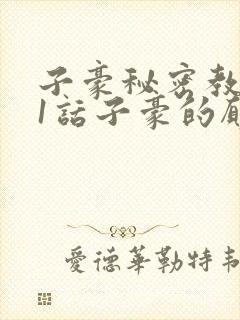 子豪秘密教
1話子豪的
愛德華勒特韋